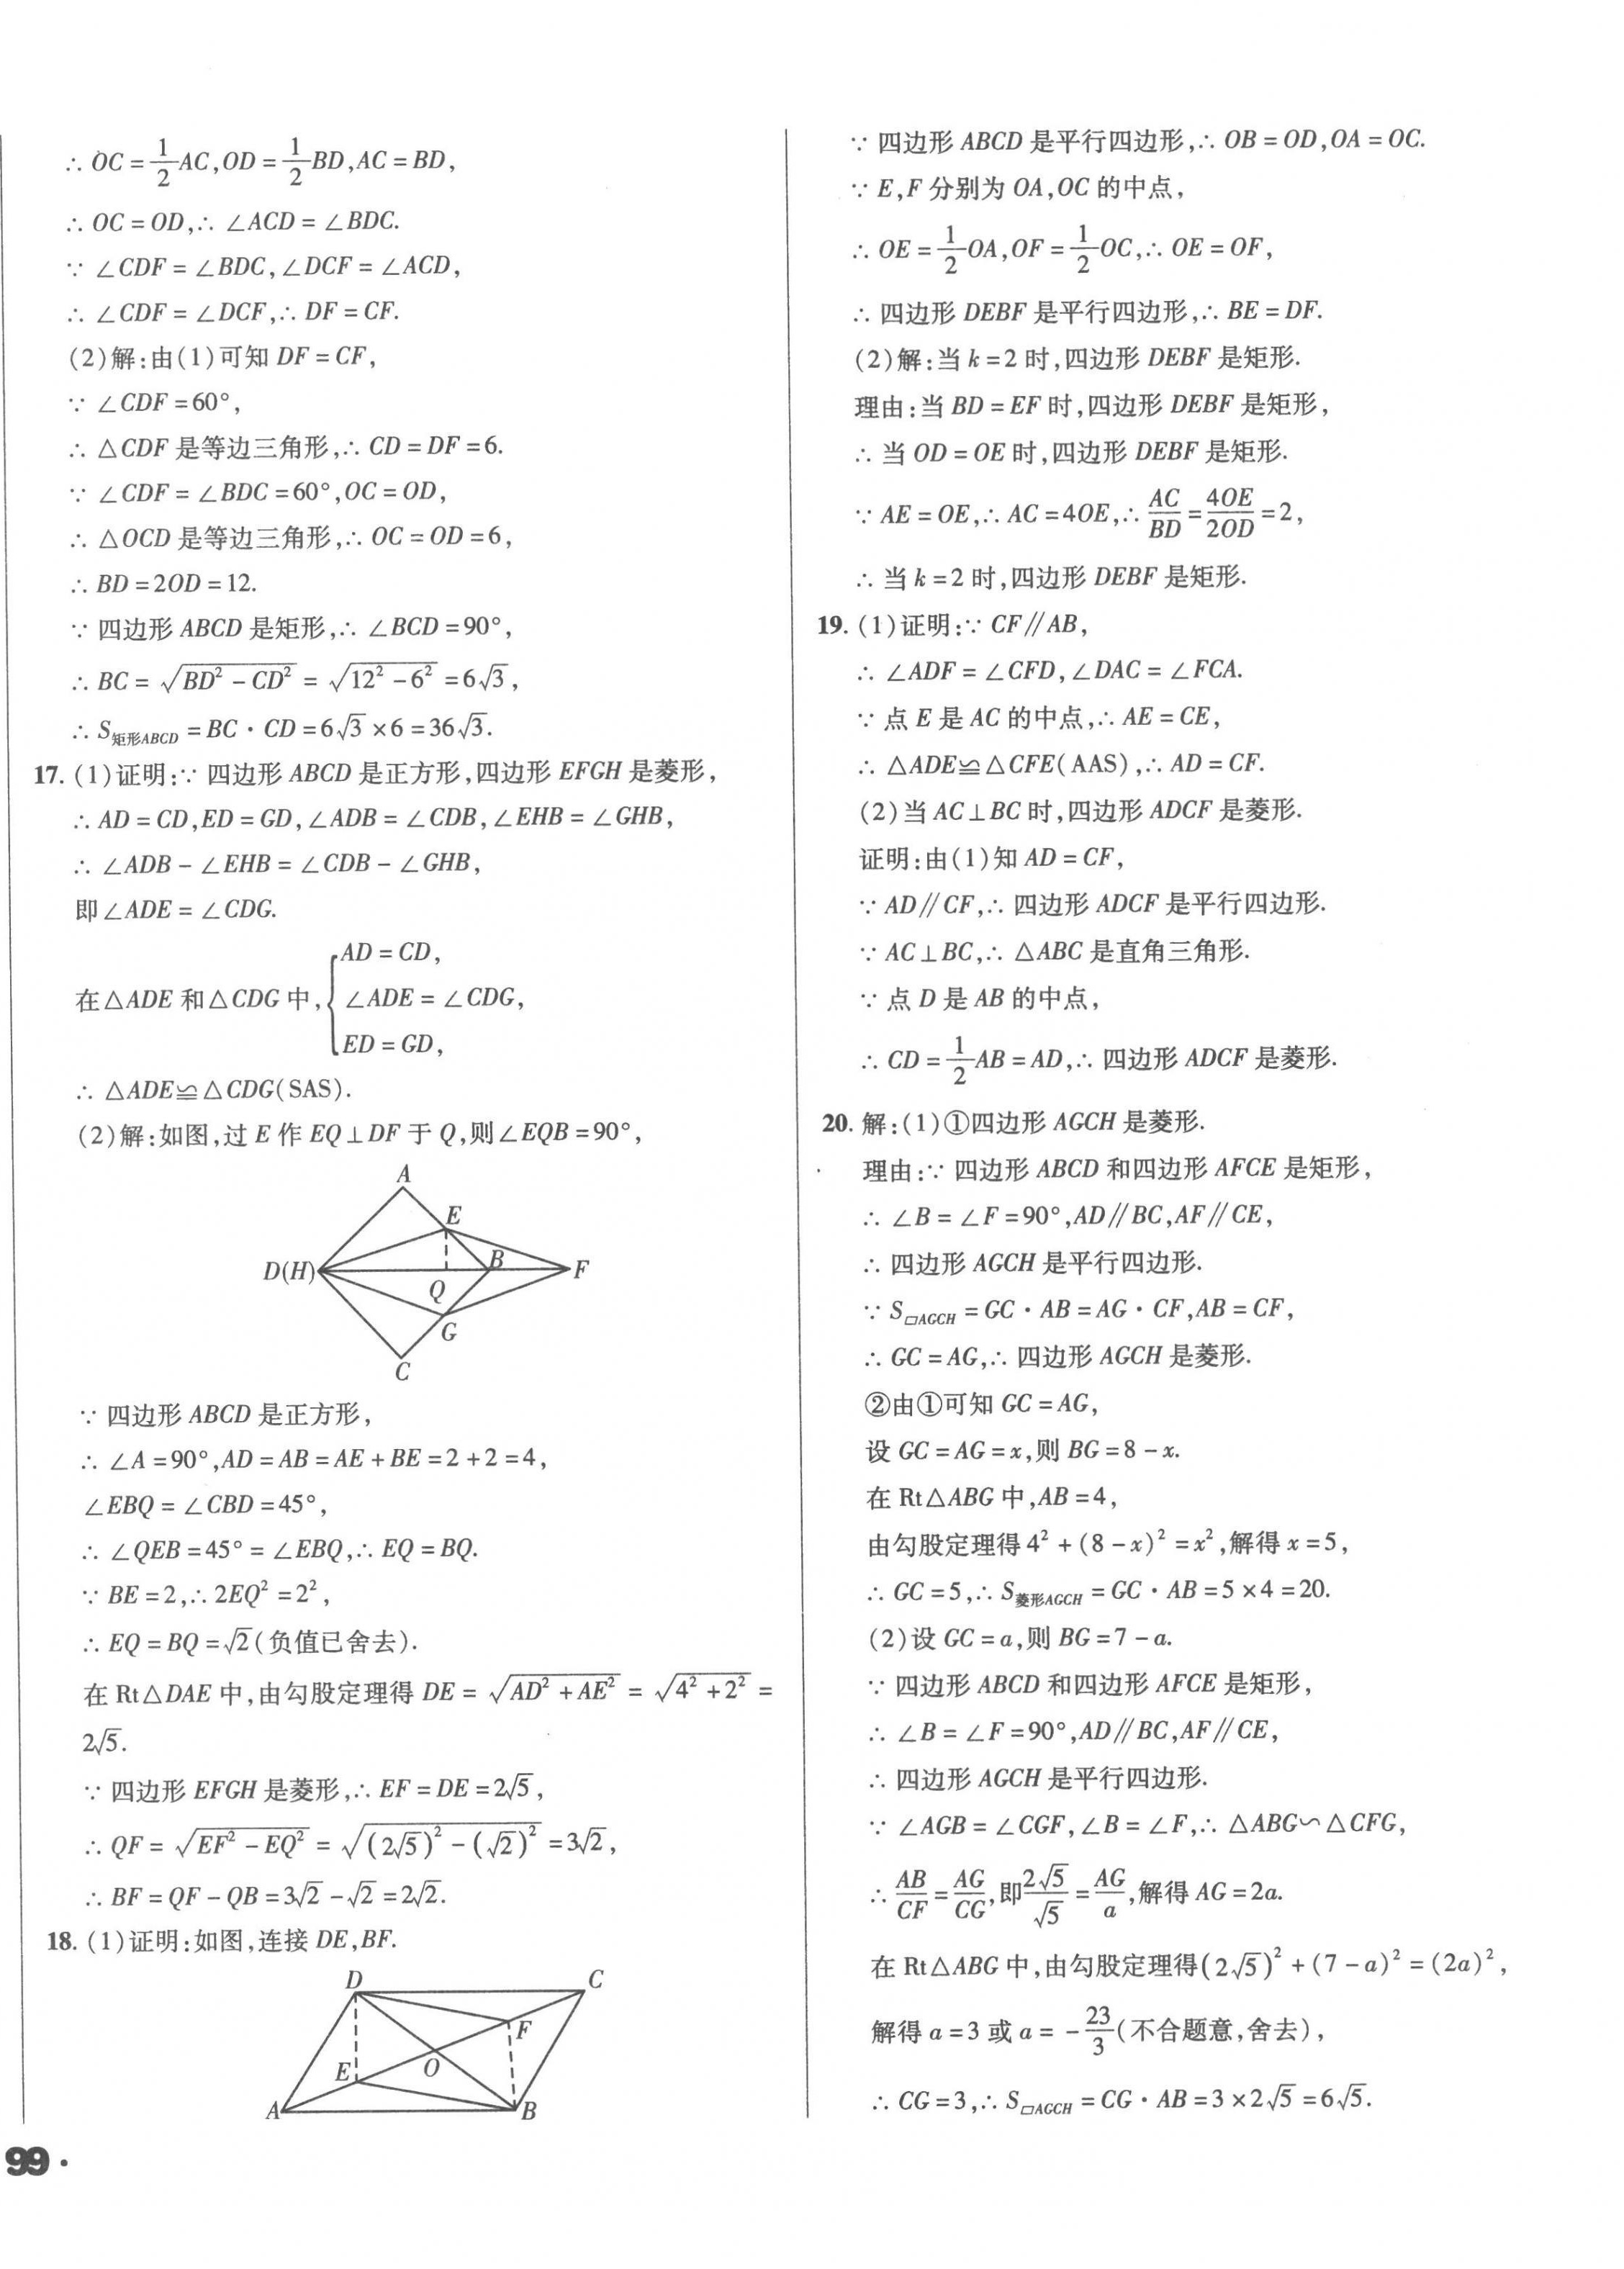 ∴ OC = 1/2 AC, OD = 1/2 BD, AC = BD,
∴ OC = OD, ∴ ∠ACD = ∠BDC.
∵ ∠CDF = ∠BDC, ∠DCF = ∠ACD,
∴ ∠CDF = ∠DCF, ∴ DF = CF.
(2)解:由(1)可知 DF = CF,
∵ ∠CDF = 60°,
∴ △CDF 是等边三角形, ∴ CD = DF = 6.
∵ ∠CDF = ∠BDC = 60°, OC = OD,
∴ △OCD 是等边三角形, ∴ OC = OD = 6,
∴ BD = 2OD = 12.
∵ 四边形 ABCD 是矩形, ∴ ∠BCD = 90°,
∴ BC = √(BD² − CD²) = √(12² − 6²) = 6√3,
∴ S矩形ABCD = BC · CD = 6√3 × 6 = 36√3.
17. (1)证明:∵ 四边形 ABCD 是正方形,四边形 EFGH 是菱形,
∴ AD = CD, ED = GD, ∠ADB = ∠CDB, ∠EHB = ∠GHB,
∴ ∠ADB − ∠EHB = ∠CDB − ∠GHB,
即∠ADE = ∠CDG.
AD = CD,
在△ADE 和△CDG 中, { ∠ADE = ∠CDG,
ED = GD,
∴ △ADE≌△CDG(SAS).
(2)解:如图,过 E 作 EQ⊥DF 于 Q,则∠EQB = 90°,
A
E
D(H) B F
Q
G
C
∵ 四边形 ABCD 是正方形,
∴ ∠A = 90°, AD = AB = AE + BE = 2 + 2 = 4,
∠EBQ = ∠CBD = 45°,
∴ ∠QEB = 45° = ∠EBQ, ∴ EQ = BQ.
∵ BE = 2, ∴ 2EQ² = 2²,
∴ EQ = BQ = √2(负值已舍去).
在 Rt△DAE 中,由勾股定理得 DE = √(AD² + AE²) = √(4² + 2²) =
2√5.
∵ 四边形 EFGH 是菱形, ∴ EF = DE = 2√5,
∴ QF = √(EF² − EQ²) = √((2√5)² − (√2)²) = 3√2,
∴ BF = QF − QB = 3√2 − √2 = 2√2.
18. (1)证明:如图,连接 DE, BF.
D C
F
E O
A B
99 ·
∵ 四边形 ABCD 是平行四边形, ∴ OB = OD, OA = OC.
∵ E, F 分别为 OA, OC 的中点,
∴ OE = 1/2 OA, OF = 1/2 OC, ∴ OE = OF,
∴ 四边形 DEBF 是平行四边形, ∴ BE = DF.
(2)解:当 k = 2 时,四边形 DEBF 是矩形.
理由:当 BD = EF 时,四边形 DEBF 是矩形,
∴ 当 OD = OE 时,四边形 DEBF 是矩形.
∵ AE = OE, ∴ AC = 4OE, ∴ AC/BD = 4OE/2OD = 2,
∴ 当 k = 2 时,四边形 DEBF 是矩形.
19. (1)证明:∵ CF∥AB,
∴ ∠ADF = ∠CFD, ∠DAC = ∠FCA.
∵ 点 E 是 AC 的中点, ∴ AE = CE,
∴ △ADE≌△CFE(AAS), ∴ AD = CF.
(2)当 AC⊥BC 时,四边形 ADCF 是菱形.
证明:由(1)知 AD = CF,
∵ AD∥CF, ∴ 四边形 ADCF 是平行四边形.
∵ AC⊥BC, ∴ △ABC 是直角三角形.
∵ 点 D 是 AB 的中点,
∴ CD = 1/2 AB = AD, ∴ 四边形 ADCF 是菱形.
20. 解:(1)①四边形 AGCH 是菱形.
理由:∵ 四边形 ABCD 和四边形 AFCE 是矩形,
∴ ∠B = ∠F = 90°, AD∥BC, AF∥CE,
∴ 四边形 AGCH 是平行四边形.
∵ S▱AGCH = GC · AB = AG · CF, AB = CF,
∴ GC = AG, ∴ 四边形 AGCH 是菱形.
②由①可知 GC = AG,
设 GC = AG = x,则 BG = 8 − x.
在 Rt△ABG 中, AB = 4,
由勾股定理得 4² + (8 − x)² = x²,解得 x = 5,
∴ GC = 5, ∴ S菱形AGCH = GC · AB = 5 × 4 = 20.
(2)设 GC = a,则 BG = 7 − a.
∵ 四边形 ABCD 和四边形 AFCE 是矩形,
∴ ∠B = ∠F = 90°, AD∥BC, AF∥CE,
∴ 四边形 AGCH 是平行四边形.
∵ ∠AGB = ∠CGF, ∠B = ∠F, ∴ △ABG∽△CFG,
∴ AB/CF = AG/CG,即 2√5/√5 = AG/a,解得 AG = 2a.
在 Rt△ABG 中,由勾股定理得(2√5)² + (7 − a)² = (2a)²,
解得 a = 3 或 a = −23/3(不合题意,舍去),
∴ CG = 3, ∴ S▱AGCH = CG · AB = 3 × 2√5 = 6√5.